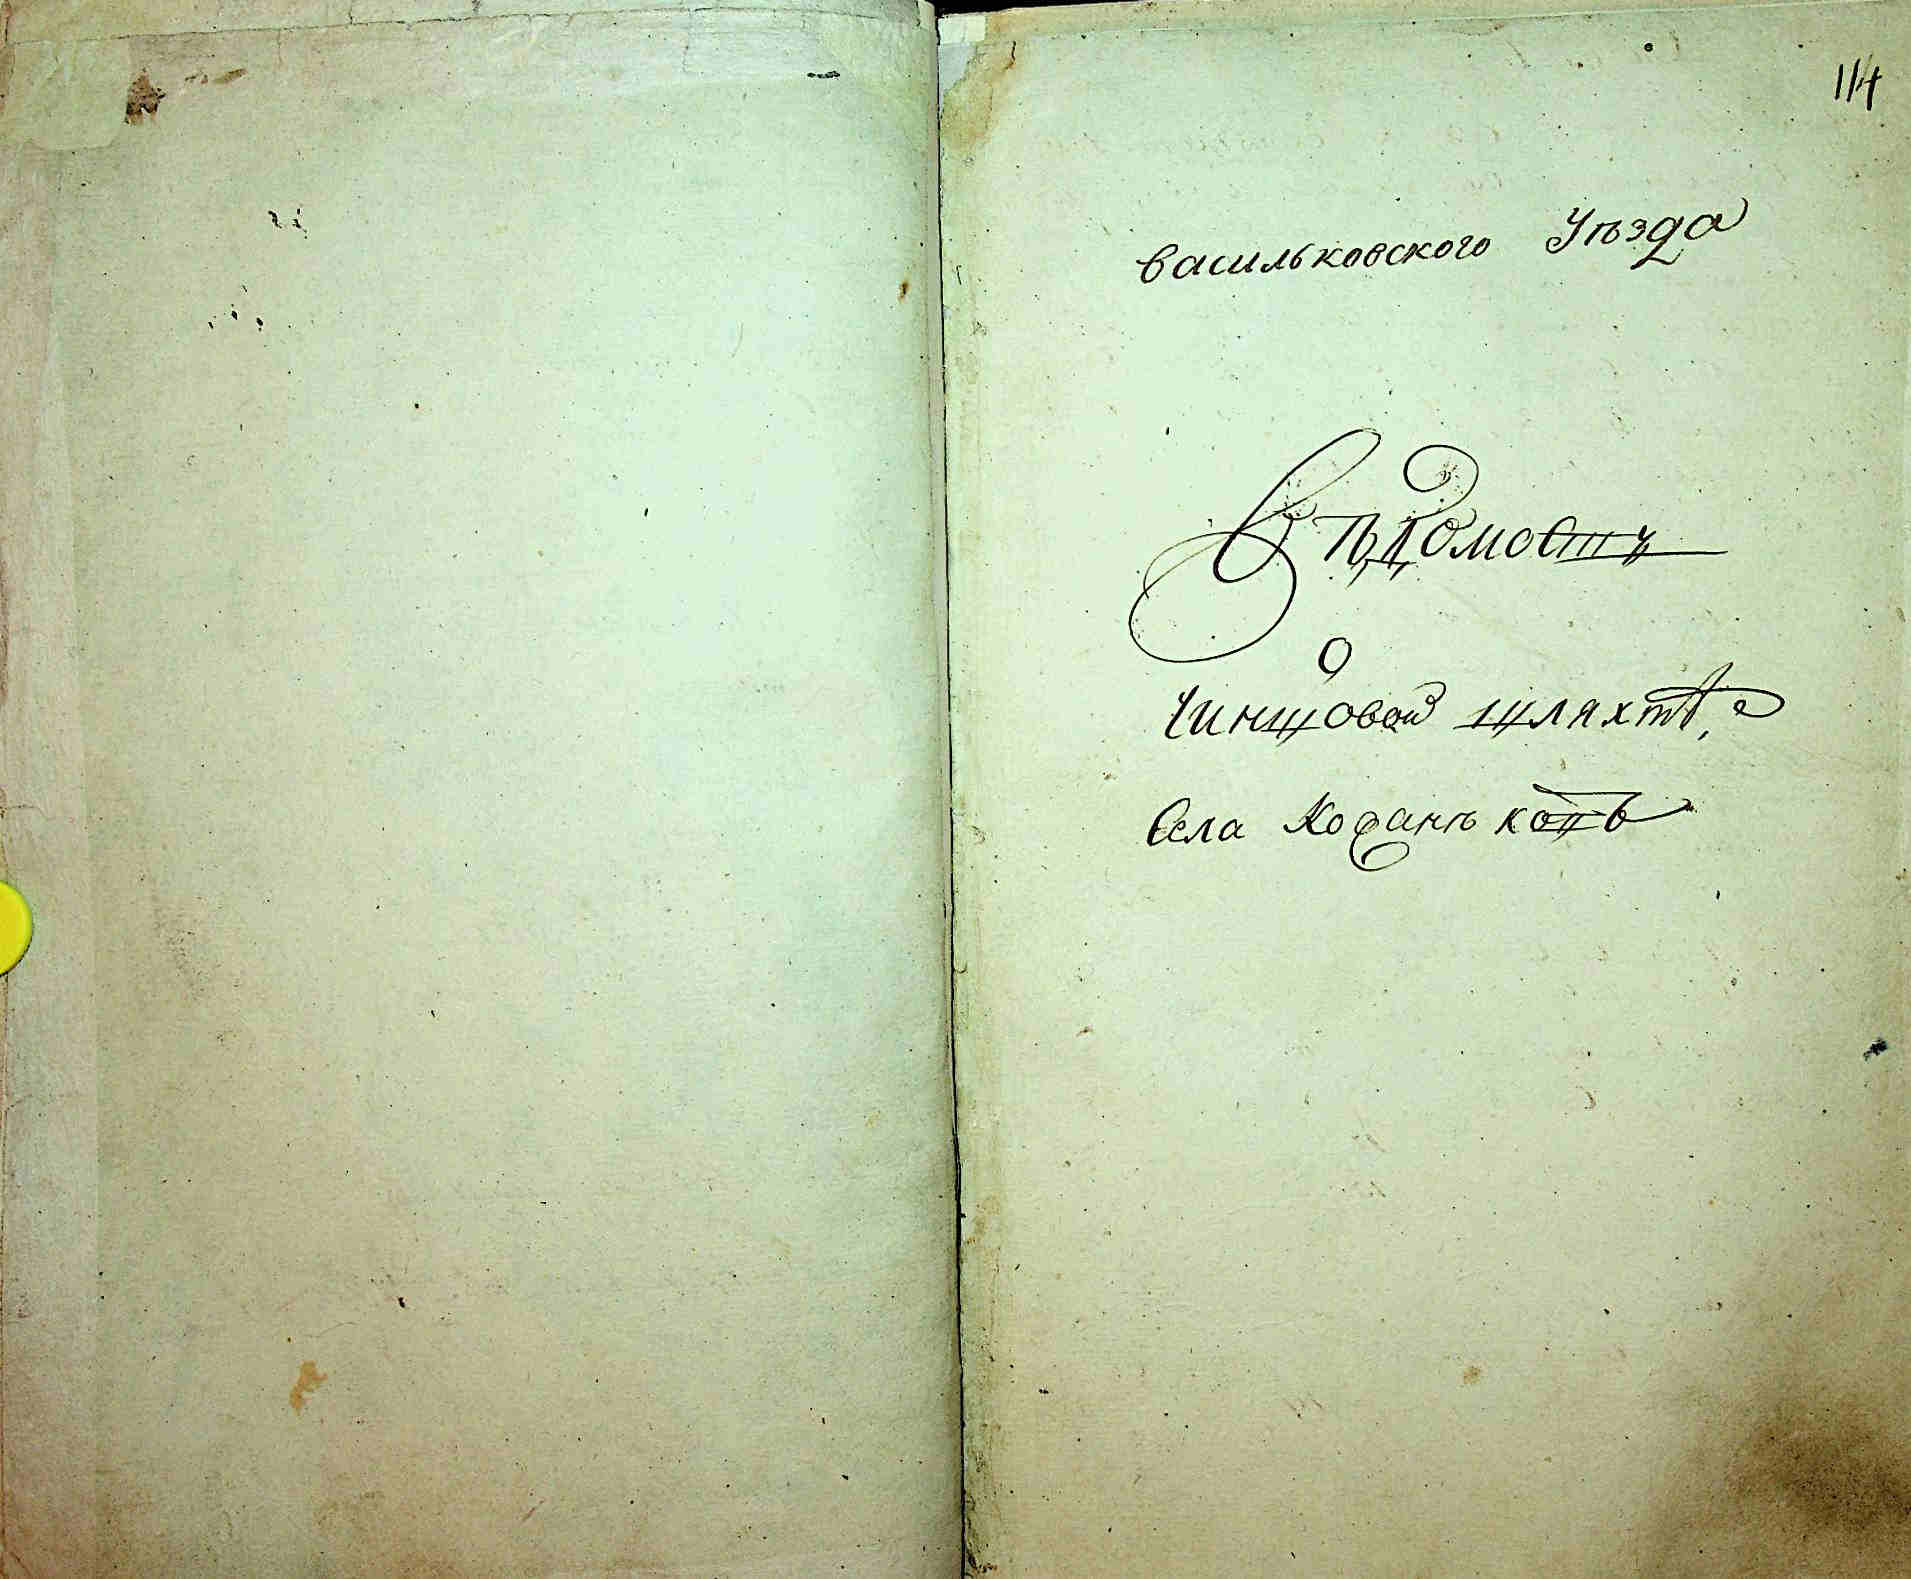 114
васильковского Уѣзда
Вѣдомость
О
Чиншовой шляхтѣ,
Села